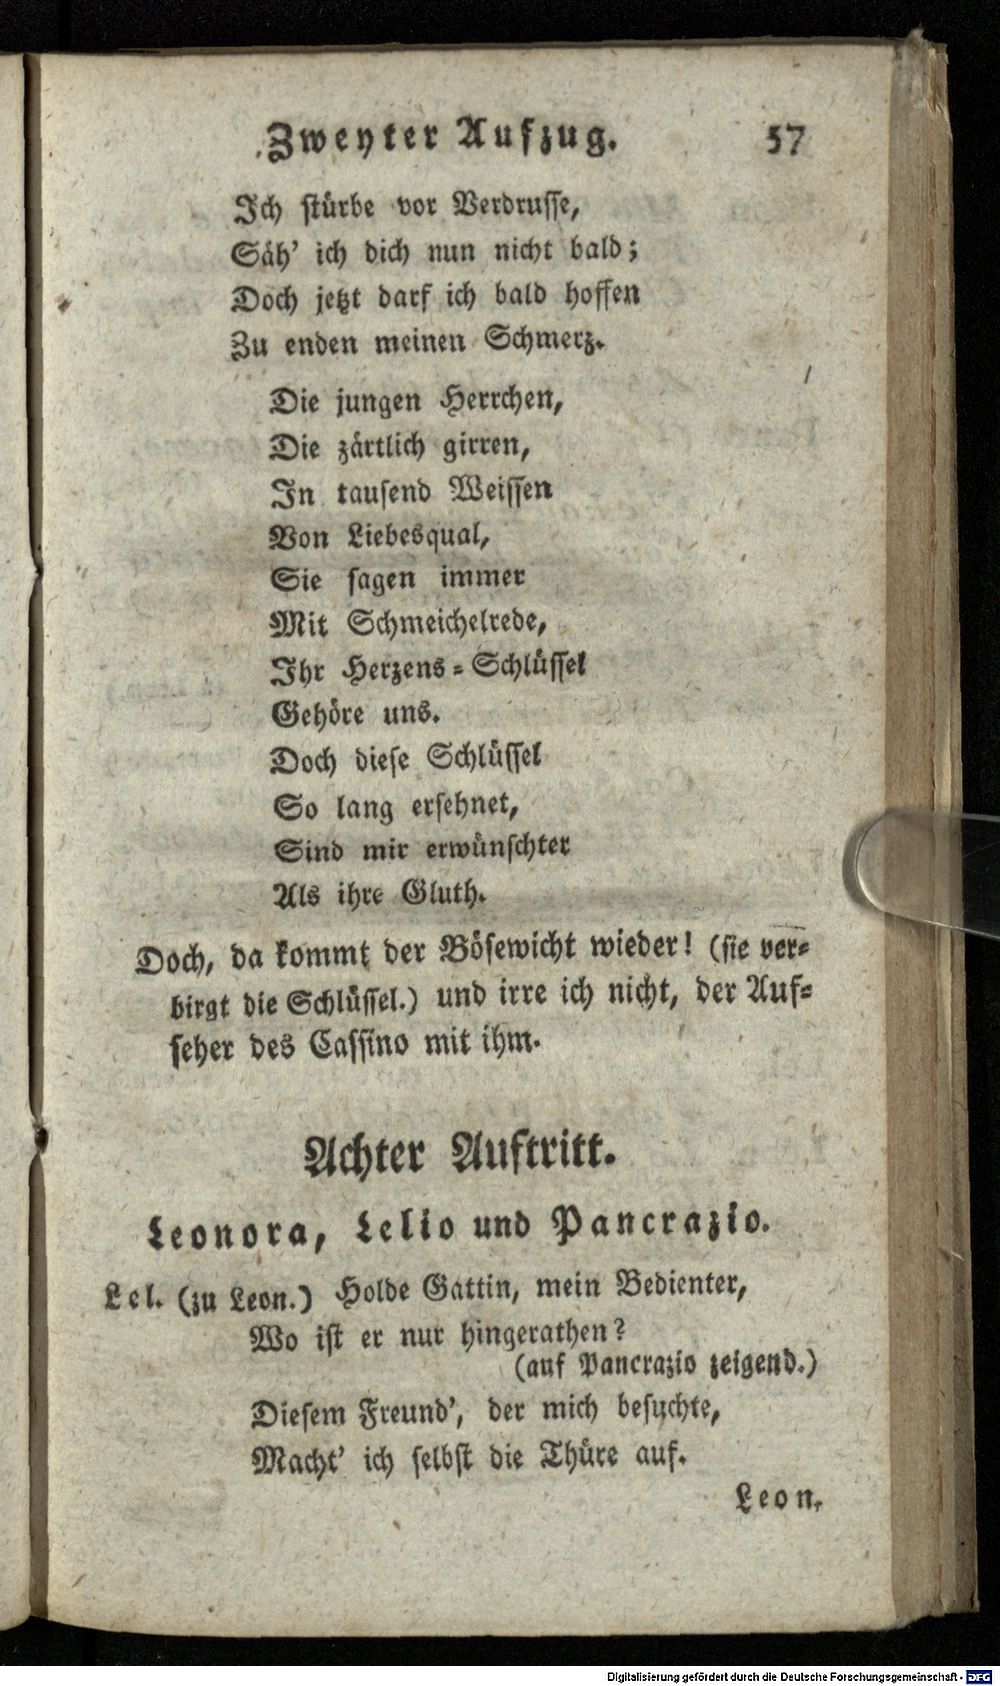 Zweyter Aufzug. 57
Ich stürbe vor Verdrusse,
Säh' ich dich nun nicht bald;
Doch jetzt darf ich bald hoffen
Zu enden meinen Schmerz.
Die jungen Herrchen,
Die zärtlich girren,
In tausend Weissen
Von Liebesqual,
Sie sagen immer
Mit Schmeichelrede,
Ihr Herzens-Schlüssel
Gehöre uns.
Doch diese Schlüssel
So lang ersehnet,
Sind mir erwünschter
Als ihre Gluth.
Doch, da kommt der Bösewicht wieder! (sie ver-
birgt die Schlüssel.) und irre ich nicht, der Auf-
seher des Cassino mit ihm.
Achter Auftritt.
Leonora, Lelio und Pancrazio.
Lel. (zu Leon.) Holde Gattin, mein Bedienter,
Wo ist er nur hingerathen?
(auf Pancrazio zeigend.)
Diesem Freund', der mich besuchte,
Macht' ich selbst die Thüre auf.
Leon.
Digitalisierung gefördert durch die Deutsche Forschungsgemeinschaft - DFG